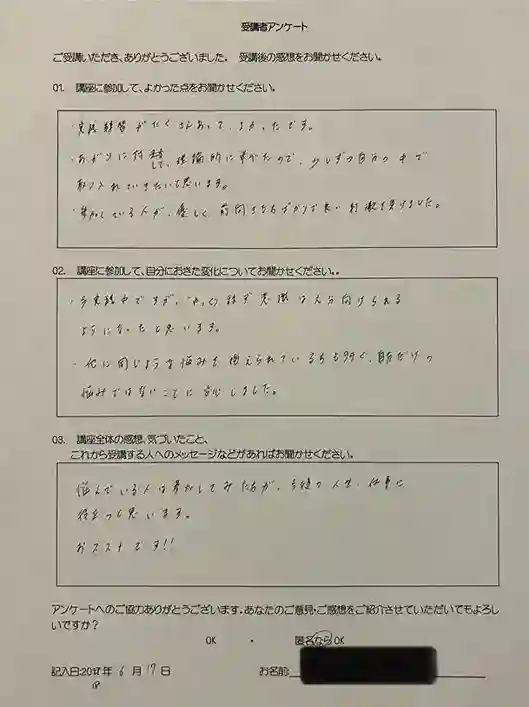 受講者アンケート
ご受講いただき、ありがとうございました。 受講後の感想をお聞かせください。
01. 講座に参加して、よかった点をお聞かせください。
・実践練習がたくさんあって、よかったです。
・あがりに対して、理論的に学べたので、少しずつ自分の中で
取り入れていきたいと思います。
・参加している人が、優しく、前向きな方ばかりで良い刺激を受けました。
02. 講座に参加して、自分におきた変化についてお聞かせください。。
・今実践中ですが、ゆっくり話す意識は大分向けられる
ようになったと思います。
・他に同じような悩みを抱えられている方も多く、自分だけの
悩みではないことに安心しました。
03. 講座全体の感想、気づいたこと、
これから受講する人へのメッセージなどがあればお聞かせください。
悩んでいる人は参加してみた方が、今後の人生、仕事に
役立つと思います。
おススメです!!
アンケートへのご協力ありがとうございます。あなたのご意見・ご感想をご紹介させていただいてもよろし
いですか?
OK ・ 匿名ならOK
記入日:2017年 6月 17日 お名前:
18